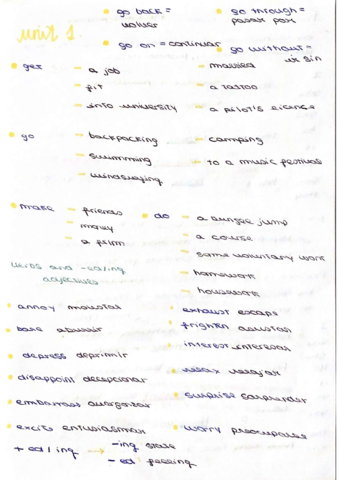 go back = volver
go through = pasar por
unit 1
go on = continuar
go without = ir sin
get
- a job
- fit
- into university
- married
- a tattoo
- a pilot's licence
go
- backpacking
- swimming
- windsurfing
- camping
- to a music festival
make
- friends
- money
- a film
do
- a bungee jump
- a course
- some voluntary work
- homework
- housework
verbs and -ed/ing
adjectives
annoy molestar
bore aburrir
depress deprimir
disappoint decepcionar
embarrass avergonzar
excite entusiasmar
exhaust
frighten asustar
interest interesar
relax relajar
surprise sorprender
worry preocuparse
+ ed / ing → -ing state
- ed feeling